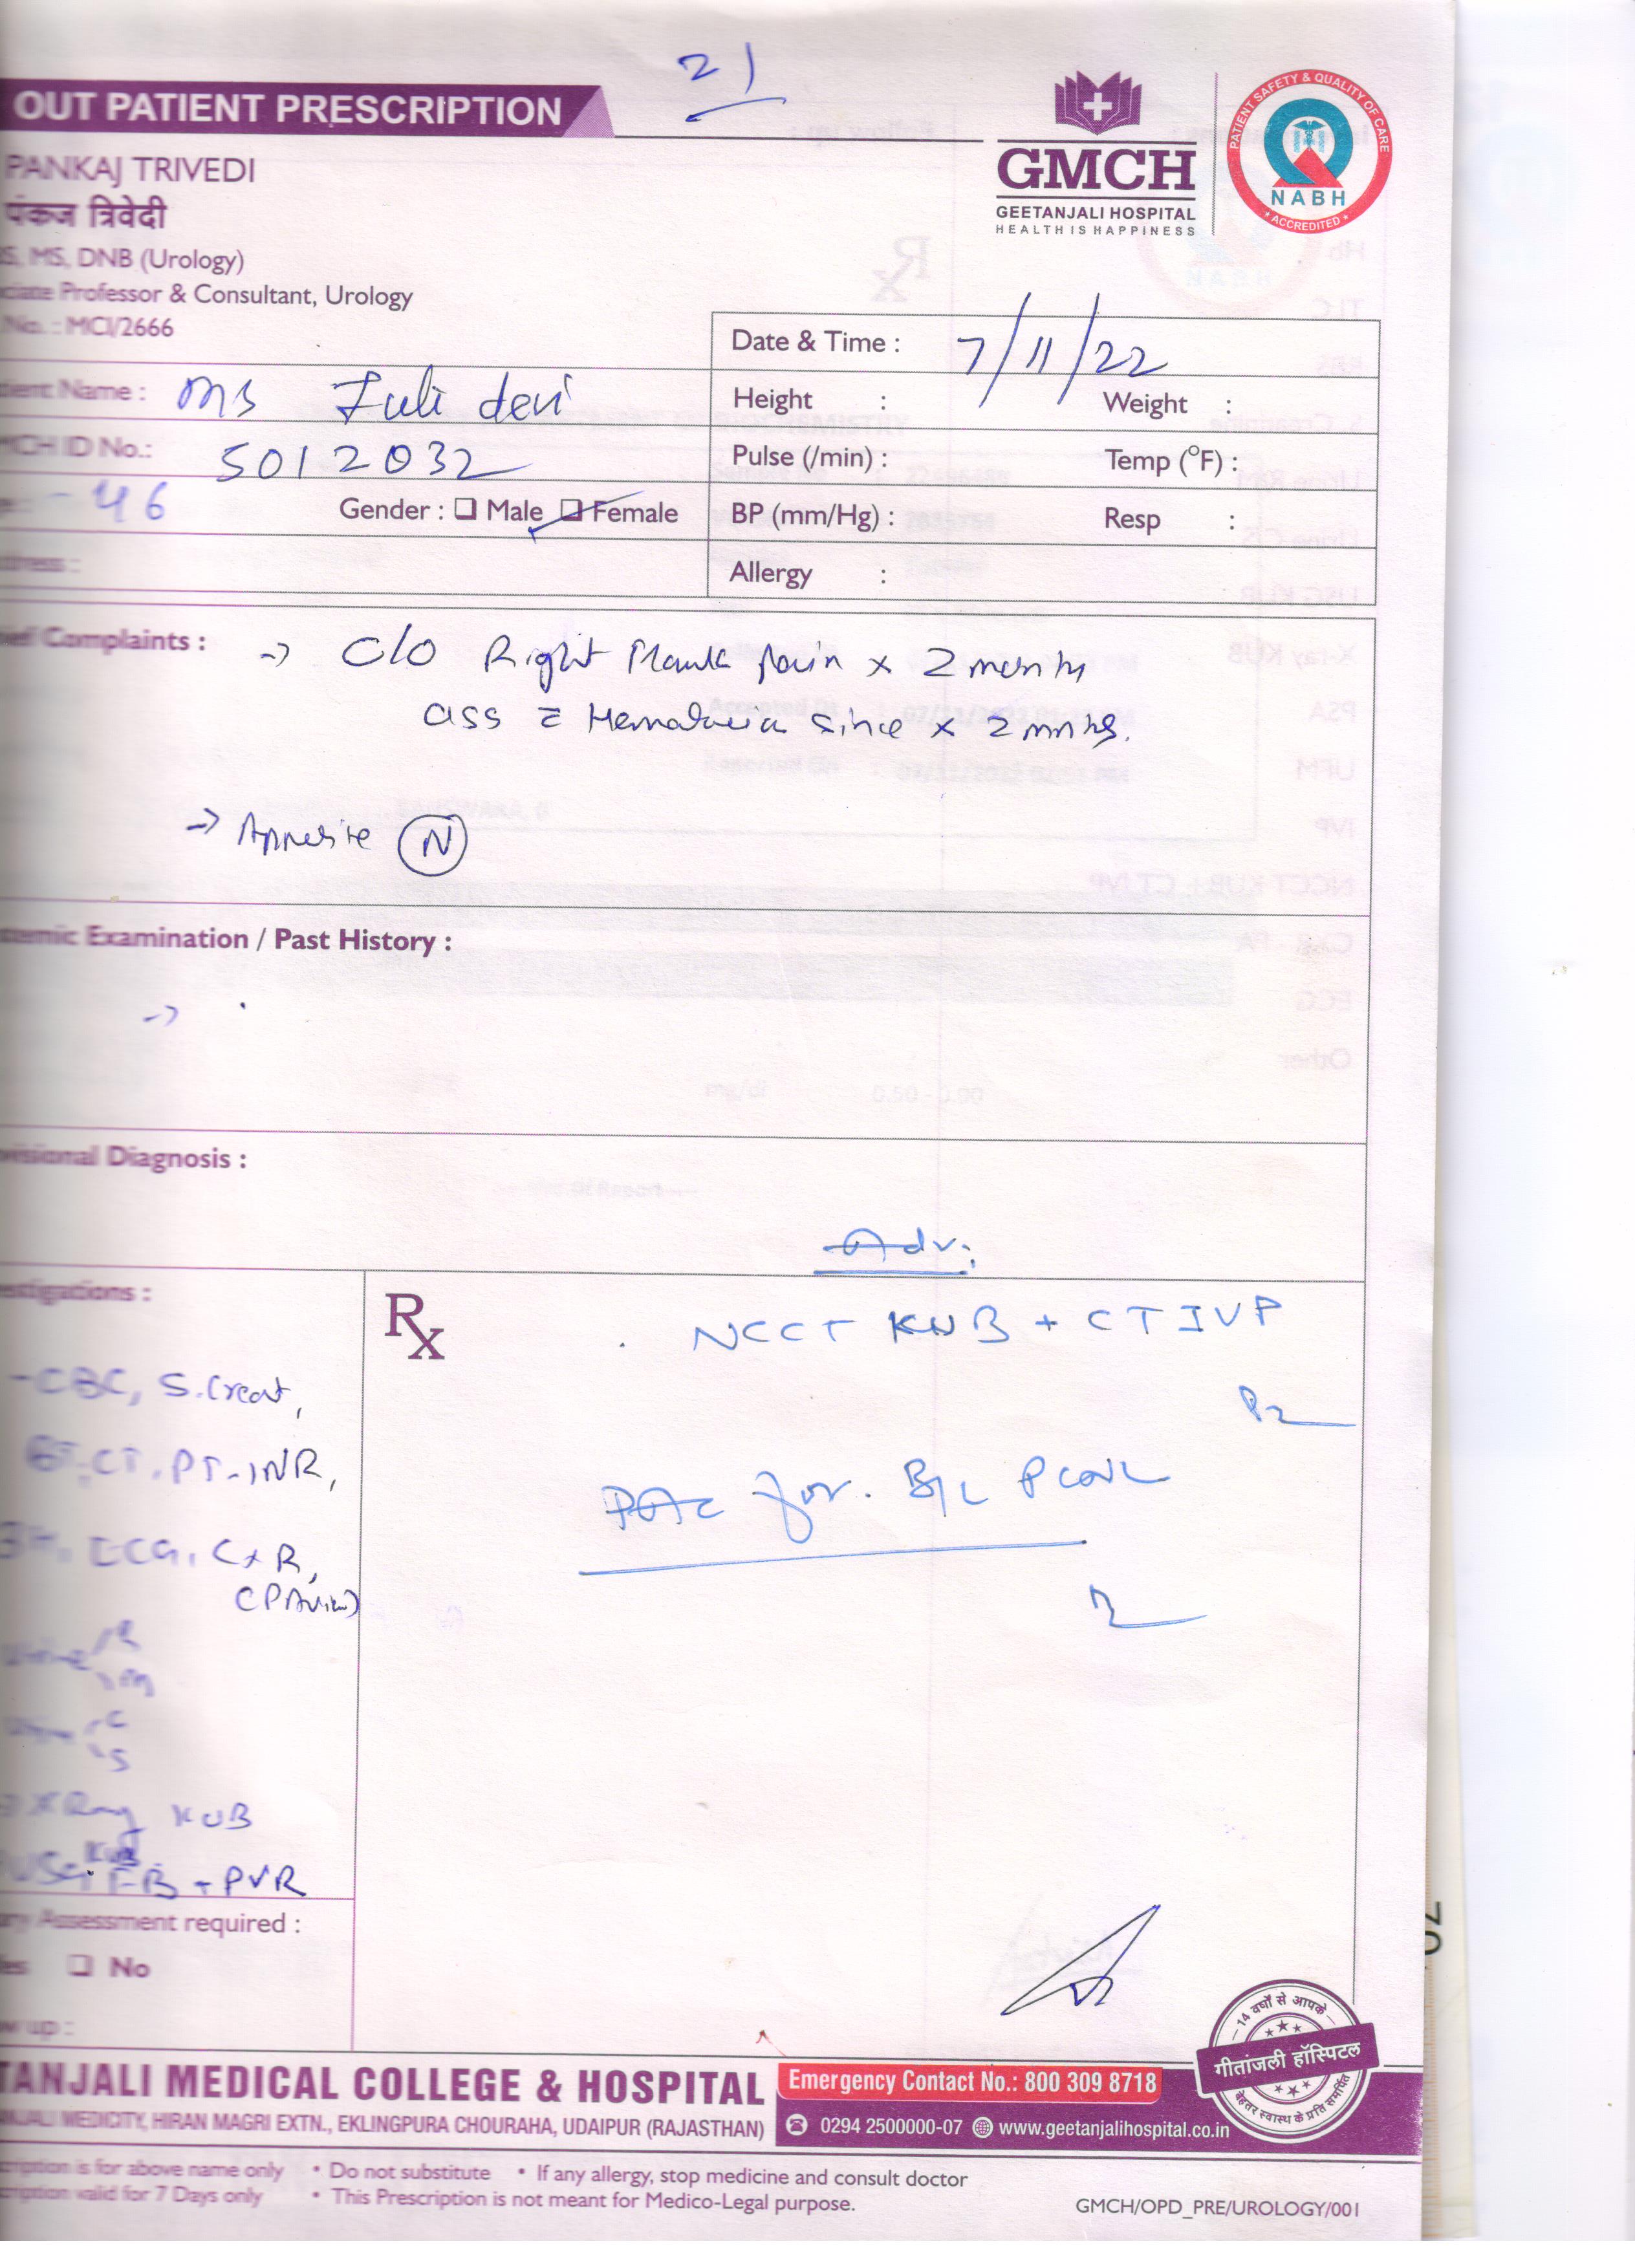 21
OUT PATIENT PRESCRIPTION
PANKAJ TRIVEDI
पंकज त्रिवेदी
MS, DNB (Urology)
Professor & Consultant, Urology
No. : MCI/2666
GMCH
GEETANJALI HOSPITAL
HEALTH IS HAPPINESS
PATIENT SAFETY & QUALITY OF CARE
NABH
ACCREDITED
Date & Time : 7/11/22
Name : Ms Zuli devi
Height : Weight :
ID No.: 5012032
Pulse (/min) : Temp (°F) :
46 Gender : Male Female
BP (mm/Hg) : Resp :
Allergy :
Complaints : → C/O Right Flank pain x 2 months
ass = Hematuria since x 2 mnths.
→ Appetite N
Examination / Past History :
→
Diagnosis :
Adv:
Rx
NCCT KUB + CT IVP
- CBC, S. Creat,
BT, CT, PT-INR,
PAC for. B/L PCNL
ECG, CxR,
(PA view)
Urine R
M
C
S
XRay KUB
KUB
USG FB + PVR
Assessment required :
No
up :
14 वर्षों से आपके
गीतांजली हॉस्पिटल
बेहतर स्वास्थ के प्रति समर्पित
TANJALI MEDICAL COLLEGE & HOSPITAL
Emergency Contact No.: 800 309 8718
MEDICITY, HIRAN MAGRI EXTN., EKLINGPURA CHOURAHA, UDAIPUR (RAJASTHAN)
0294 2500000-07 www.geetanjalihospital.co.in
is for above name only • Do not substitute • If any allergy, stop medicine and consult doctor
valid for 7 Days only • This Prescription is not meant for Medico-Legal purpose.
GMCH/OPD_PRE/UROLOGY/001